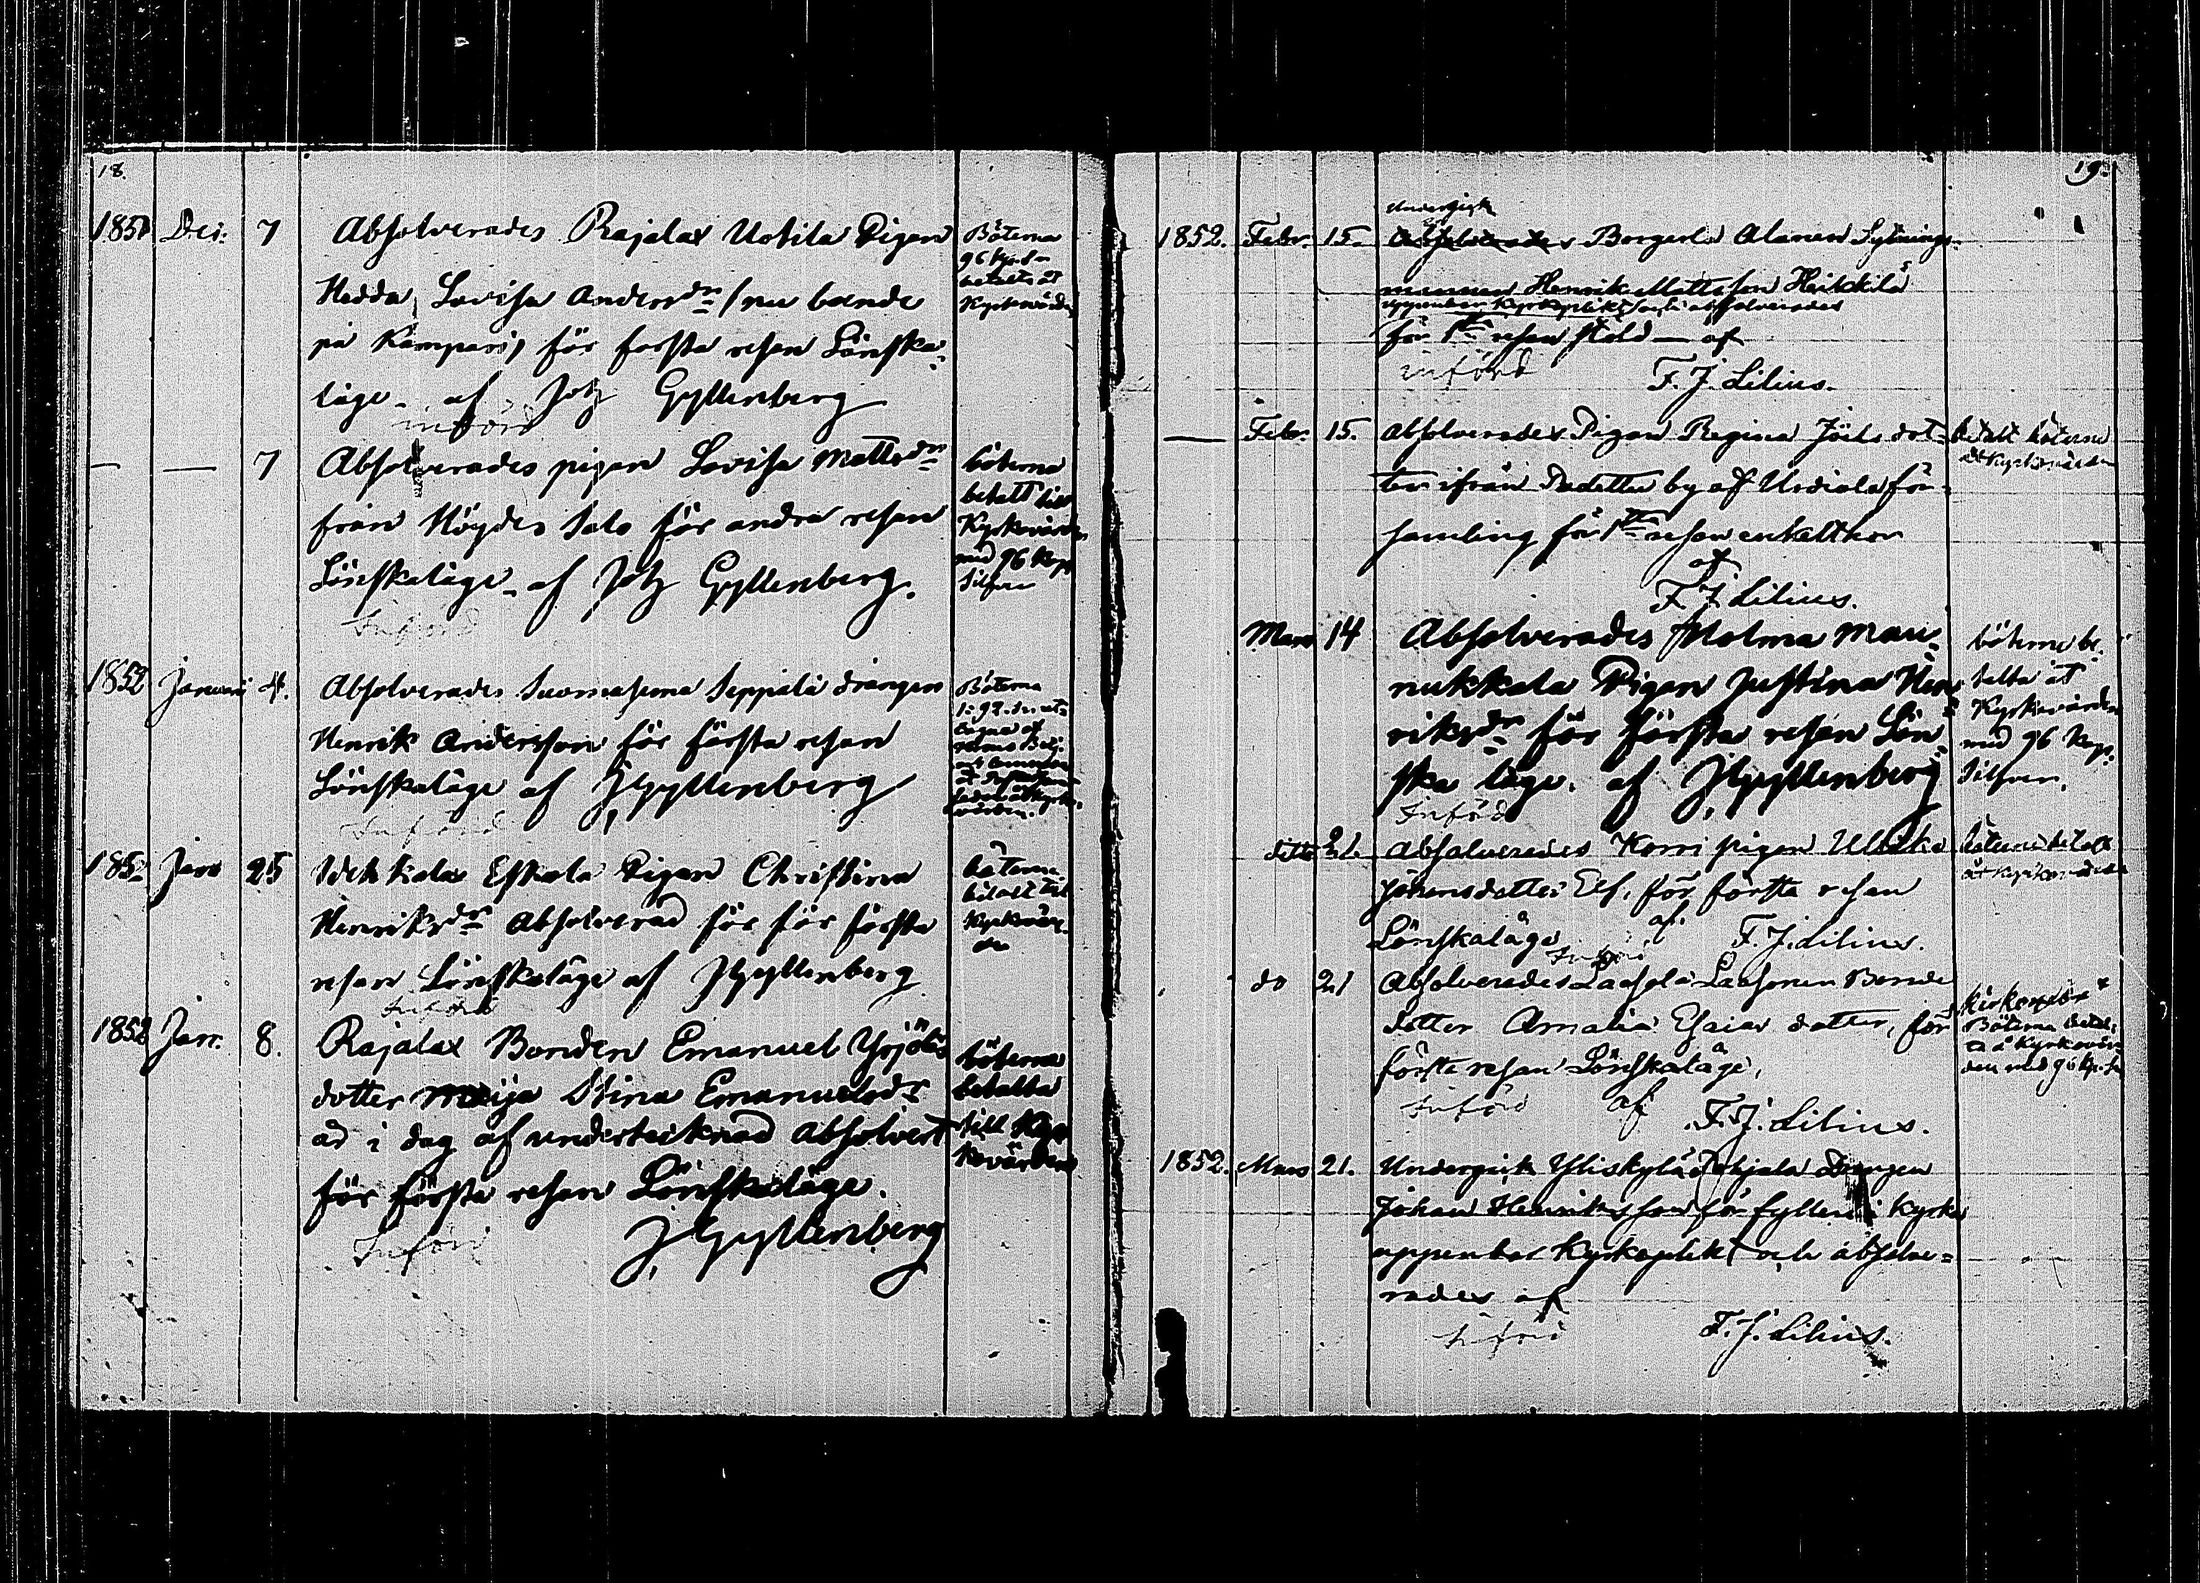 18.
1851 Dec. 7 Absolverades Rajalax Uotila Pigan
Hedda Lovisa Andersdr (nu boende
på Kampari) för första resan Lönska-
läge - af Joh Gyllenberg
införd
Böterna
96 kop. s
betalts åt
Kyrkovärden
— — 7 Absolverades pigan Lovisa Mattsdr
från Höydes Salo för andra resan
Lönskaläge - af Joh Gyllenberg.
Införd
böterna
betalt till
Kyrkovärden
med 96 kop.
Silfver
1852 Januari 4. Absolverades Suomasema Seppälä drängen
Henrik Andersson för första resan
Lönskaläge af J Gyllenberg
Införd
Böterna
1: 92.
1852 Janr 25 Eskola Pigan Christina
Henriksdr Absolverad för för första
resan Lönskaläge af J Gyllenberg
Införd
böterna
betalt till
Kyrkovär-
den
1852 Jan. 8. Rajalax Bonden Emanuel Yrjölä
dotter Maija Stina Emanuelsdr
äd i dag af undertecknad absolvert
för första resan Lönskaläge.
J Gyllenberg
Införd
böterna
betalta
till Kyr
kovärden
19.
Undergick
1852. Febr. 15. Absolverades Borgerla Alanen Sytnings-
mannen Henrik Mattsson Heikkilä
uppenbar kyrkoplikt och absolverades
för 1sta resan stöld — af
införd F. J. Lilius.
— Febr. 15. Absolverades Pigan Regina Jöels dot-
ter ifrån by af Urdiala för-
samling för 1sta resan enkelt hor
af
F. J. Lilius.
betalt böterne
åt Kyrkovärden
Mars 14 Absolverades Molma Mau-
nukkala Pigan Justina Hen-
riksdr för första resan Lön-
ska läge. af J Gyllenberg
Införd
böterne be-
talta åt
Kyrkovärden
med 96 kop.
Silfver.
ditto 21. Absolverades Korri pigan Ulrika
Johansdotter Elf, för första resan
Lönskaläge af F. J. Lilius.
Införd
böterne betalt
åt kyrkovärden
do 21 Absolverades Laasola Laasonen Bonde
dotter Amalia Esaias dotter, för
första resan Lönskaläge,
Införd af F. J. Lilius.
Böterna betal-
ta å Kyrkovär-
den med 96 kp. S.
1852. Mars 21. Undergick Yliskylä Pohjala Drengen
Johan Henriksson för fylleri i Kyrka
uppenbar Kyrkoplikt och absolve-
rades af
införd F. J. Lilius.